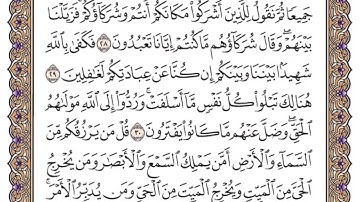 جَمِيعًا ثُمَّ نَقُولُ لِلَّذِينَ أَشْرَكُوا۟ مَكَانَكُمْ أَنتُمْ وَشُرَكَآؤُكُمْ ۚ فَزَيَّلْنَا
بَيْنَهُمْ ۖ وَقَالَ شُرَكَآؤُهُم مَّا كُنتُمْ إِيَّانَا تَعْبُدُونَ ٢٨ فَكَفَىٰ بِٱللَّهِ
شَهِيدًۢا بَيْنَنَا وَبَيْنَكُمْ إِن كُنَّا عَنْ عِبَادَتِكُمْ لَغَـٰفِلِينَ ٢٩
هُنَالِكَ تَبْلُوا۟ كُلُّ نَفْسٍ مَّآ أَسْلَفَتْ ۚ وَرُدُّوٓا۟ إِلَى ٱللَّهِ مَوْلَىٰهُمُ
ٱلْحَقِّ ۖ وَضَلَّ عَنْهُم مَّا كَانُوا۟ يَفْتَرُونَ ٣٠ قُلْ مَن يَرْزُقُكُم مِّنَ
ٱلسَّمَآءِ وَٱلْأَرْضِ أَمَّن يَمْلِكُ ٱلسَّمْعَ وَٱلْأَبْصَـٰرَ وَمَن يُخْرِجُ
ٱلْحَىَّ مِنَ ٱلْمَيِّتِ وَيُخْرِجُ ٱلْمَيِّتَ مِنَ ٱلْحَىِّ وَمَن يُدَبِّرُ ٱلْأَمْرَ ۚ